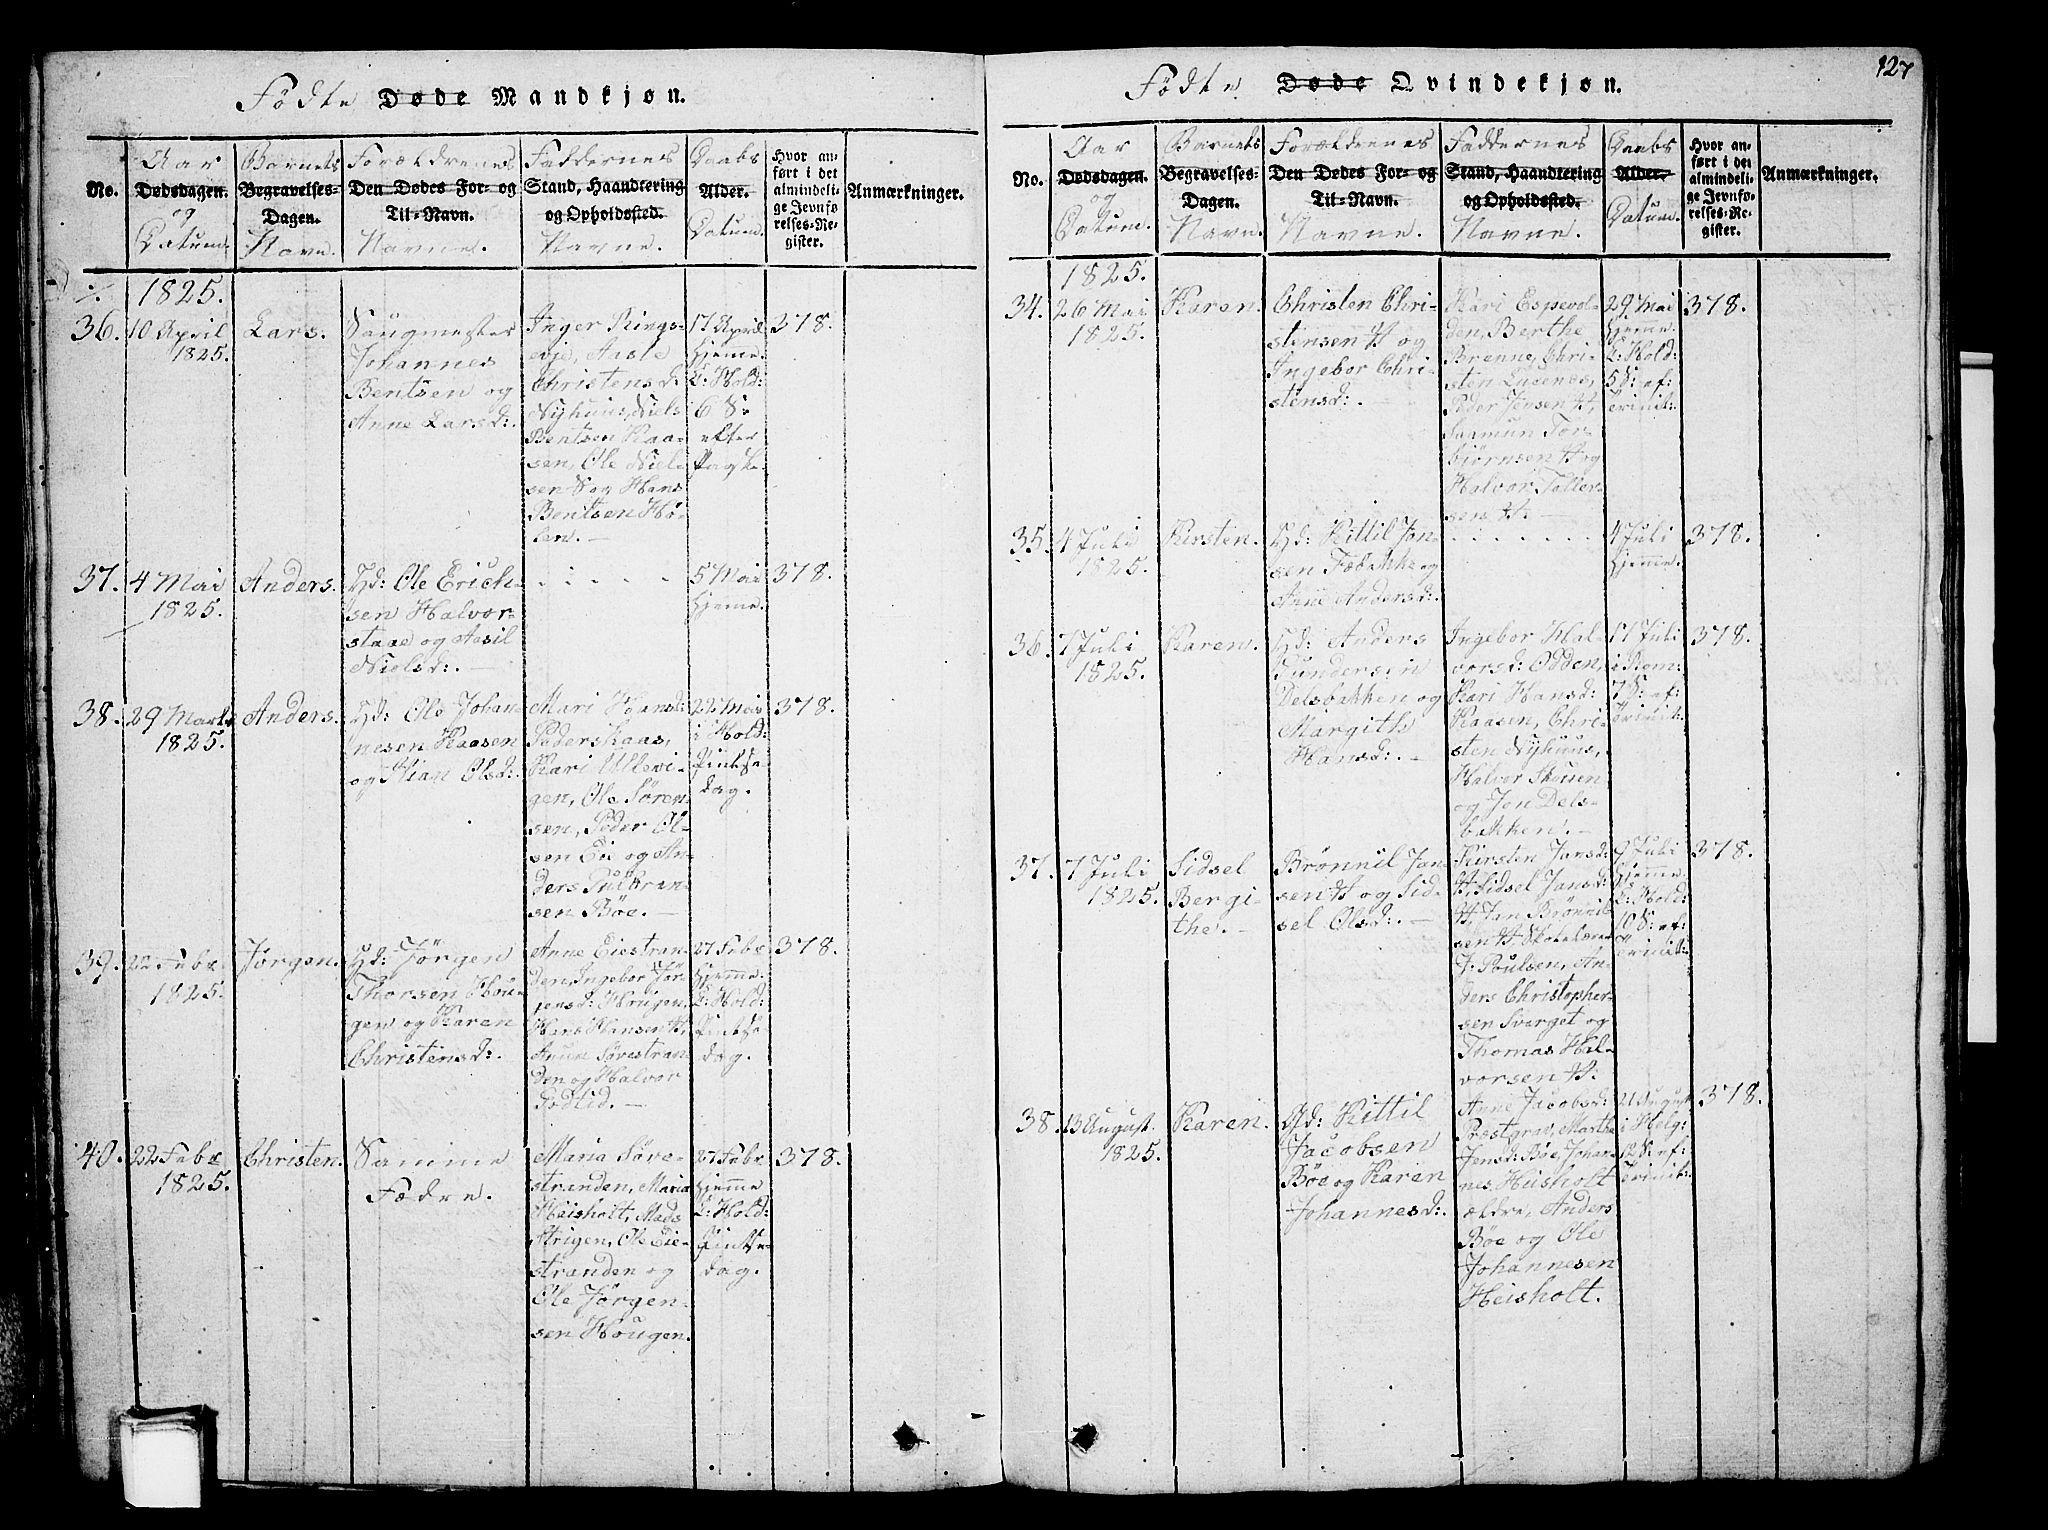 127
Födte Døde Mandkjøn.
No.
Aar
Dødsdagen.
og
Datum.
Barnets
Begravelses-
Dagen.
Navn.
Forældrenes
Den Dødes For- og
Til-Navn.
Navne.
Faddernes
Stand, Haandtering
og Opholdssted.
Navne.
Daabs
Alder.
Datum.
Hvor an-
ført i det
almindeli-
ge Jevnfø-
relses-Re-
gister.
Anmærkninger.
1825.
36.
10 April
1825.
Lars.
Saugmester
Johannes
Bentsen og
Anne Larsd:.
Inger Rings-
evje, Aasle
Christensd:
Nyhuus, Niels
Bentsen Kaa-
sen, Ole Niel-
sen S og Hans
Bentsen Hö-
len.
17 April
hjeme.
C: Hold:
6 S:
efter
Paaske.
378.
37.
4 Mai
1825.
Anders.
Gd: Ole Erich-
sen Halvor-
staae og Aasil
Nielsd:.
5 Mai
hjeme.
378.
38.
29 Marts
1825.
Anders.
Gd: Ole Johan-
nesen Kaasen
og Olsd:.
Mari Hansd:
Pederskaas,
Kari Ullevi-
gen, Ole Sören-
sen, Peder Ol-
sen Eie og An-
ders Gulbran-
sen Böe.
22 Mai
i Hold:
Pintse
dag.
378.
39.
22 Febr
1825.
Jörgen.
Gd: Jörgen
Thorsen Hou-
gen og Karen
Christensd:.
Anne Eiestran-
den, Ingebor Jör-
gensd: Hougen,
Hans Hansen H,
Anun Sörestran-
den og Halvor
Fodtid.
27 Febr
hjemme.
C: Hold:
Pintse
dag.
378.
40.
22 Febr
1825.
Christen.
Samme
Fædre.
Maria Söre-
stranden, Maria
Heisholt, Mads
Strigen, Ole Eie-
stranden og
Ole Jörgen-
sen Hougen.
27 Febr
hjemme
C: Hold:
Pintse-
dag.
378.
Födte Døde Qvindekjøn.
No.
Aar
Dødsdagen.
og
Datum.
Barnets
Begravelses-
Dagen.
Navn.
Forældrenes
Den Dødes For- og
Til-Navn.
Navne.
Faddernes
Stand, Haandtering
og Opholdssted.
Navne.
Daabs
Alder.
Datum.
Hvor an-
ført i det
almindeli-
ge Jevnfø-
relses-Re-
gister.
Anmærkninger.
1825.
34.
26 Mai
1825.
Karen.
Christen Chri-
stensen H og
Ingebor Chri-
stensd:.
Kari Espevol-
den, Berthe
Brenne, Chri-
sten Lucenes,
Peder Jensen H,
Saamun Tor-
björnsen H og
Halvor Toller-
sen H.
29 Mai
hjeme.
C: Hold:
5 S: ef:
Trinit:.
378.
35.
4 Juli
1825.
Kirsten.
Gd: Kittil Jon-
sen Fæbakke og
Anne Andersd:.
4 Juli
hjemme.
378.
36.
7 Juli
1825.
Karen.
Gd: Anders
Gundersen
Delsbakken og
Margith
Hansd:.
Ingebor Hal-
vorsd: Odden,
Kari Hansd:
Kaasen, Chri-
sten Nyhuus,
Halvor Skousen
og Jon Dels-
bakken.
17 Juli
i Rom:
7 S: ef:
Trinit:.
378.
37.
7 Juli
1825.
Sidsel
Bergi-
the.
Brönnil Jan-
sen H og Sid-
sel Olsd:.
Kirsten Jansd:
H, Sidsel Jansd:
H, Jan Brönnil-
sen H, Skolelærer
J: Poulsen, An-
ders Christopher-
sen Svarget og
Thomas Hal-
vorsen H:
9 Juli
hjemme.
C: Hold:
10 S: ef:
Trinit:.
378.
38.
13 August.
1825.
Karen.
Gd: Kittil
Jacobsen
Böe og Karen
Johannesd:.
Anne Jacobsd:
Præstgrav, Marthe
Jensd: Böe, Johan-
nes, Heisholt
ældre, Anders
Böe og Ole
Johannesen
Heisholt.
21 August
i Helg:
12 S: ef:
Trinit:
378.